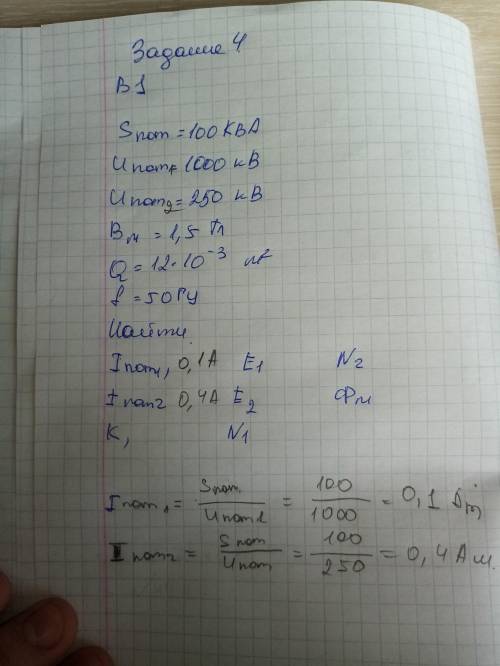 Задание 4
В1
Sном = 100 КВА
Uном1 = 1000 кВ
Uном2 = 250 кВ
Bм = 1,5 Тл
Q = 12·10⁻³ м²
f = 50 Гц
Найти
Iном1, 0,1А E1 N2
Iном2 0,4А E2 Фм
К, N1
Iном1 = Sном / Uном1 = 100 / 1000 = 0,1
Iном2 = Sном / Uном = 100 / 250 = 0,4 А